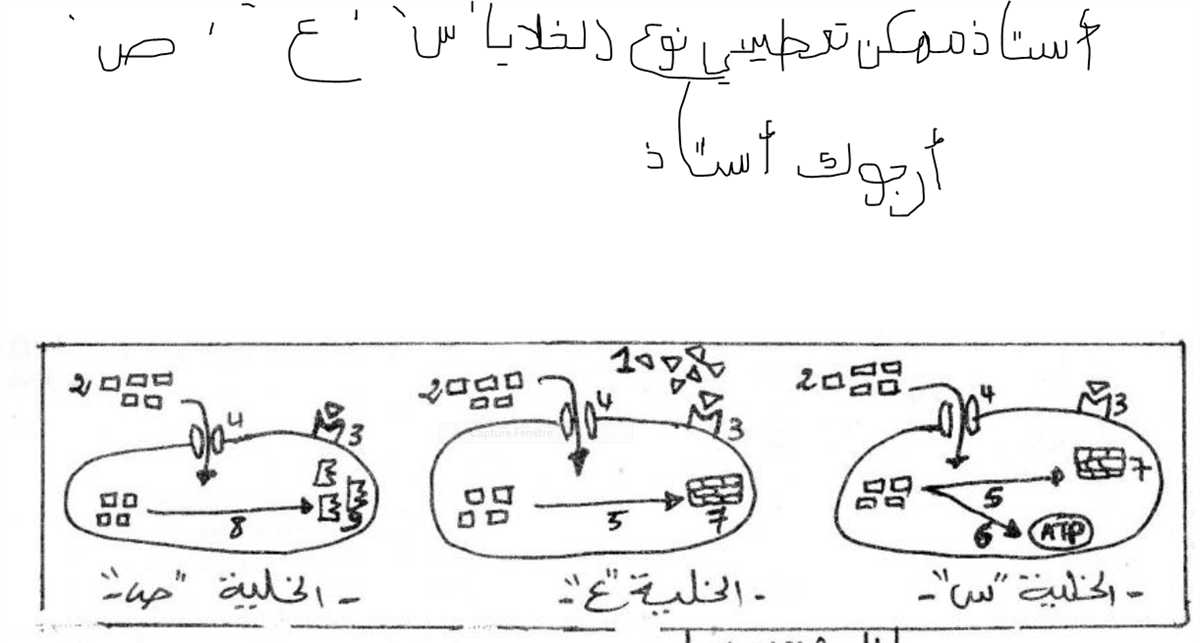 أستاذ ممكن تعطيني نوع الخلايا "س" ، "ع" ، "ص"
أرجوك أستاذ
1
2 4 3
2 4 3
2 4 3
8 9
5 7
5 7
6 ATP
- الخلية "س" -
- الخلية "ع" -
- الخلية "ص" -